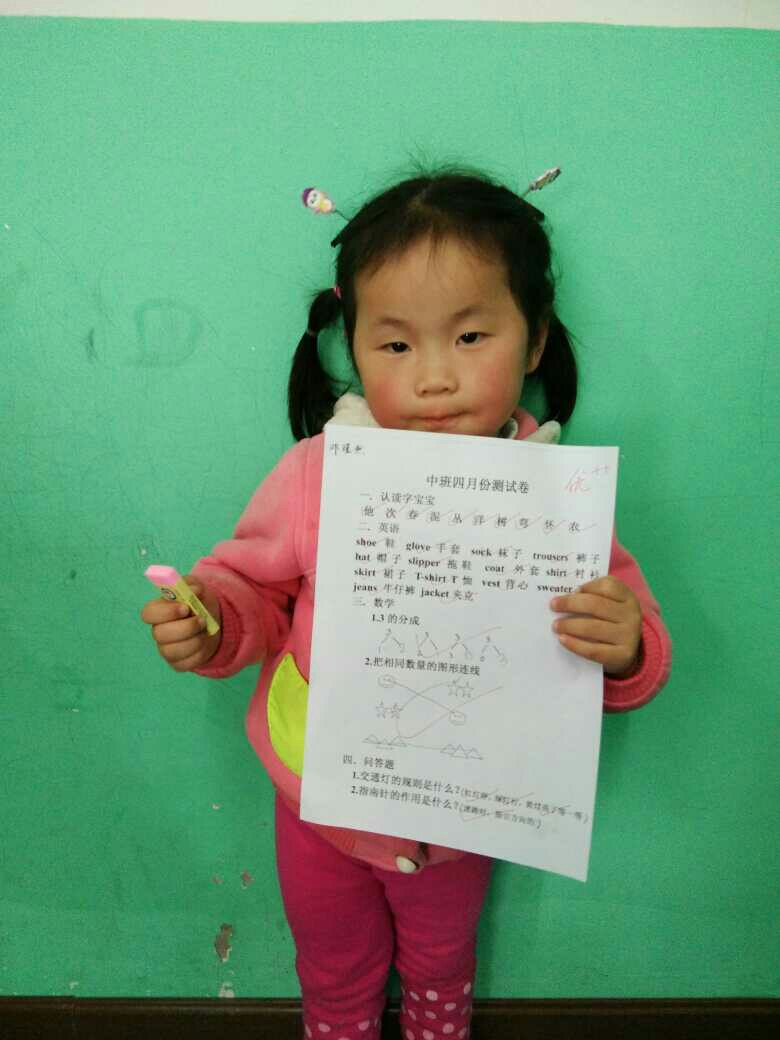 优++
中班四月份测试卷
一．认读字宝宝
他 次 春 泥 丛 洋 树 弯 怀 农
二．英语
shoe 鞋 glove 手套 sock 袜子 trousers 裤子
hat 帽子 slipper 拖鞋 coat 外套 shirt 衬衫
skirt 裙子 T-shirt T 恤 vest 背心 sweater
jeans 牛仔裤 jacket 夹克
三．数学
1.3 的分成
3 3 3 3
2.把相同数量的图形连线
四．问答题
1.交通灯的规则是什么？(红灯停，绿灯行，黄灯亮了等一等)
2.指南针的作用是什么？(迷路时，指示方向的)